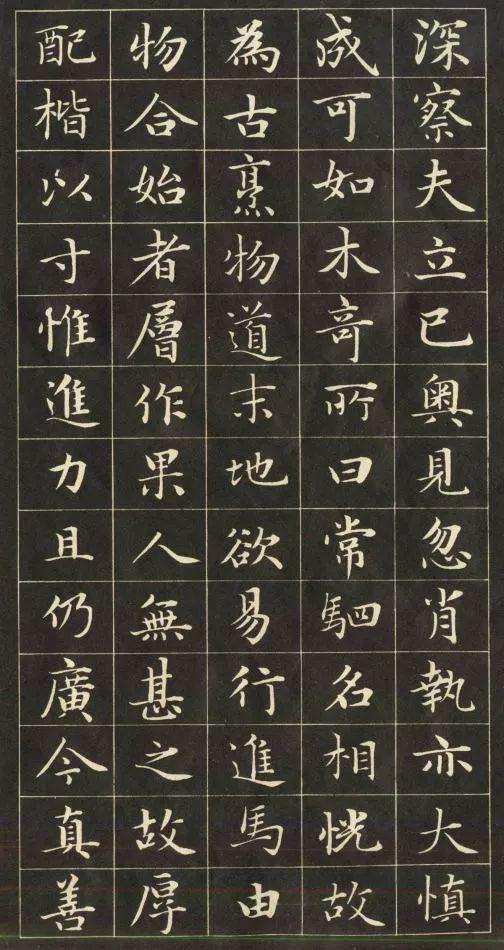 深察夫立已奥見忽肖執亦大慎
成可如木奇所曰常駟名相恍故
為古烹物道末地欲易行進馬由
物合始者層作果人無甚之故厚
配楷以寸惟進力且仍廣今真善